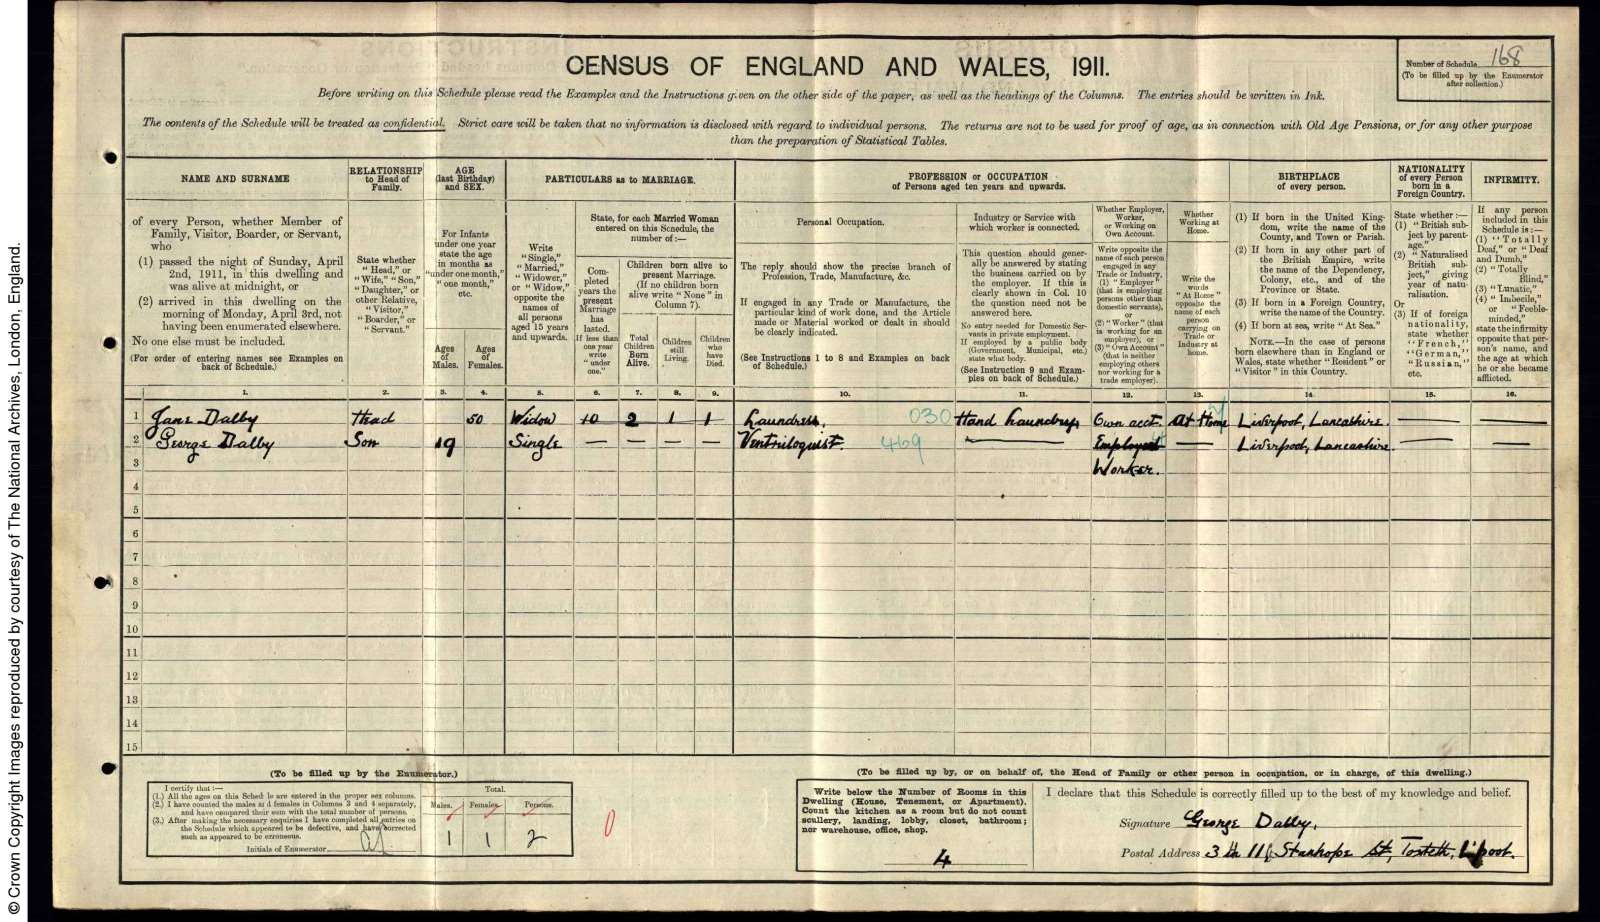 © Crown Copyright Images reproduced by courtesy of The National Archives, London, England.
CENSUS OF ENGLAND AND WALES, 1911.
Number of Schedule 168
(To be filled up by the Enumerator
after collection.)
Before writing on this Schedule please read the Examples and the Instructions given on the other side of the paper, as well as the headings of the Columns. The entries should be written in Ink.
The contents of the Schedule will be treated as confidential. Strict care will be taken that no information is disclosed with regard to individual persons. The returns are not to be used for proof of age, as in connection with Old Age Pensions, or for any other purpose
than the preparation of Statistical Tables.
NAME AND SURNAME
of every Person, whether Member of
Family, Visitor, Boarder, or Servant,
who
(1) passed the night of Sunday, April
2nd, 1911, in this dwelling and
was alive at midnight, or
(2) arrived in this dwelling on the
morning of Monday, April 3rd, not
having been enumerated elsewhere.
No one else must be included.
(For order of entering names see Examples on
back of Schedule.)
RELATIONSHIP
to Head of
Family.
State whether
"Head," or
"Wife," "Son,"
"Daughter," or
other Relative,
"Visitor,"
"Boarder," or
"Servant."
AGE
(last Birthday)
and SEX.
For Infants
under one year
state the age
in months as
"under one month,"
"one month,"
etc.
Ages
of
Males.
Ages
of
Females.
PARTICULARS as to MARRIAGE.
Write
"Single,"
"Married,"
"Widower,"
or "Widow,"
opposite the
names of
all persons
aged 15 years
and upwards.
State, for each Married Woman
entered on this Schedule, the
number of :—
Com-
pleted
years the
present
Marriage
has
lasted.
If less than
one year
write
"under
one."
Children born alive to
present Marriage.
(If no children born
alive write "None" in
Column 7).
Total
Children
Born
Alive.
Children
still
Living.
Children
who
have
Died.
PROFESSION or OCCUPATION
of Persons aged ten years and upwards.
Personal Occupation.
The reply should show the precise branch of
Profession, Trade, Manufacture, &c.
If engaged in any Trade or Manufacture, the
particular kind of work done, and the Article
made or Material worked or dealt in should
be clearly indicated.
(See Instructions 1 to 8 and Examples on back
of Schedule.)
Industry or Service with
which worker is connected.
This question should gener-
ally be answered by stating
the business carried on by
the employer. If this is
clearly shown in Col. 10
the question need not be
answered here.
No entry needed for Domestic Ser-
vants in private employment.
If employed by a public body
(Government, Municipal, etc.)
state what body.
(See Instruction 9 and Exam-
ples on back of Schedule.)
Whether Employer,
Worker,
or Working on
Own Account.
Write opposite the
name of each person
engaged in any
Trade or Industry,
(1) "Employer"
(that is employing
persons other than
domestic servants),
or
(2) "Worker" (that
is working for an
employer), or
(3) "Own Account"
(that is neither
employing others
nor working for a
trade employer).
Whether
Working at
Home.
Write the
words
"At Home"
opposite the
name of each
person
carrying on
Trade or
Industry at
home.
BIRTHPLACE
of every person.
(1) If born in the United King-
dom, write the name of the
County, and Town or Parish.
(2) If born in any other part of
the British Empire, write
the name of the Dependency,
Colony, etc., and of the
Province or State.
(3) If born in a Foreign Country,
write the name of the Country.
(4) If born at sea, write "At Sea."
NOTE.—In the case of persons
born elsewhere than in England or
Wales, state whether "Resident" or
"Visitor" in this Country.
NATIONALITY
of every Person
born in a
Foreign Country.
State whether :—
(1) "British sub-
ject by parent-
age."
(2) "Naturalised
British sub-
ject," giving
year of natu-
ralisation.
Or
(3) If of foreign
nationality,
state whether
"French,"
"German,"
"Russian,"
etc.
INFIRMITY.
If any person
included in this
Schedule is :—
(1) "Totally
Deaf," or "Deaf
and Dumb,"
(2) "Totally
Blind,"
(3) "Lunatic,"
(4) "Imbecile,"
or "Feeble-
minded,"
state the infirmity
opposite that per-
son's name, and
the age at which
he or she became
afflicted.
1. 2. 3. 4. 5. 6. 7. 8. 9. 10. 11. 12. 13. 14. 15. 16.
1 Jane Dalby Head 50 Widow 10 2 1 1 Laundress, 030 Hand Laundry, Own acct. At Home Liverpool, Lancashire. — —
2 George Dalby Son 19 Single — — — — Ventriloquist. 469 — Employed — Liverpool, Lancashire. — —
3 Worker.
4
5
6
7
8
9
10
11
12
13
14
15
(To be filled up by the Enumerator.)
I certify that :—
(1.) All the ages on this Schedule are entered in the proper sex columns.
(2.) I have counted the males and females in Columns 3 and 4 separately,
and have compared their sum with the total number of persons.
(3.) After making the necessary enquiries I have completed all entries on
the Schedule which appeared to be defective, and have corrected
such as appeared to be erroneous.
Initials of Enumerator
Total.
Males. Females. Persons.
1 1 2
0
(To be filled up by, or on behalf of, the Head of Family or other person in occupation, or in charge, of this dwelling.)
Write below the Number of Rooms in this
Dwelling (House, Tenement, or Apartment).
Count the kitchen as a room but do not count
scullery, landing, lobby, closet, bathroom ;
nor warehouse, office, shop.
4
I declare that this Schedule is correctly filled up to the best of my knowledge and belief.
Signature George Dalby,
Postal Address Stanhope St, Toxteth, L'pool.